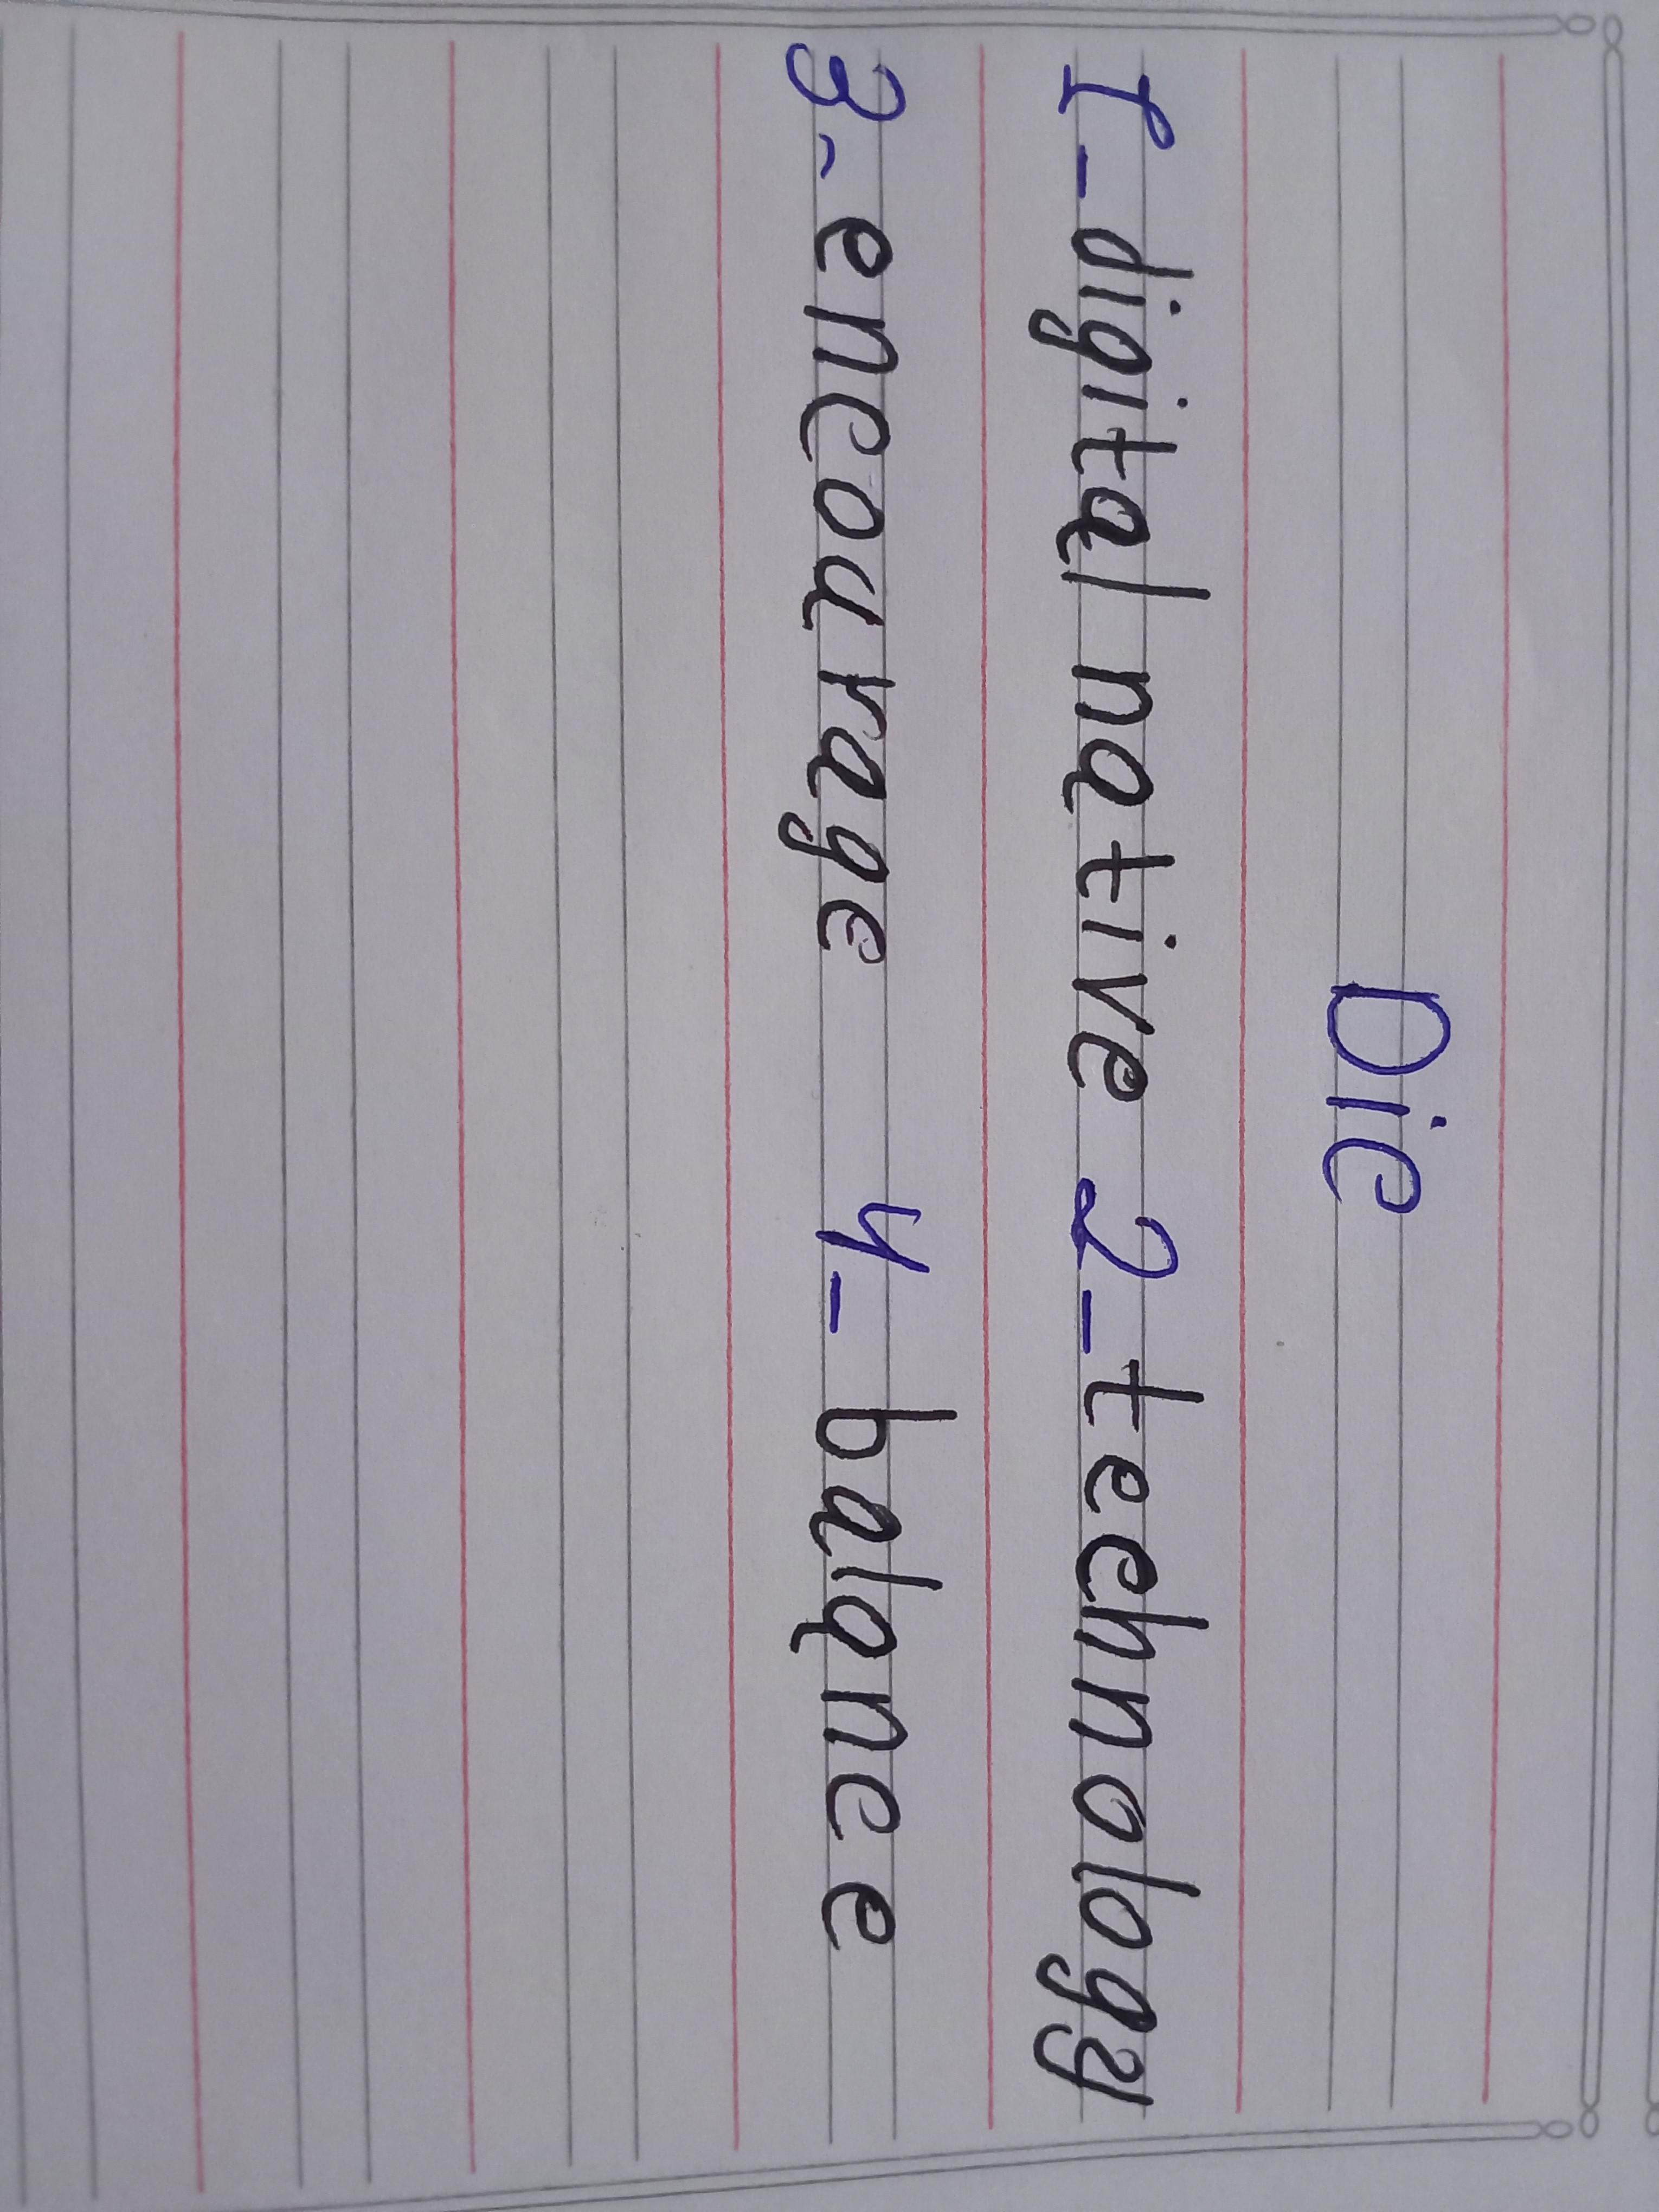 Dic
1_digital native 2_technology
3- encourage 4_ balance